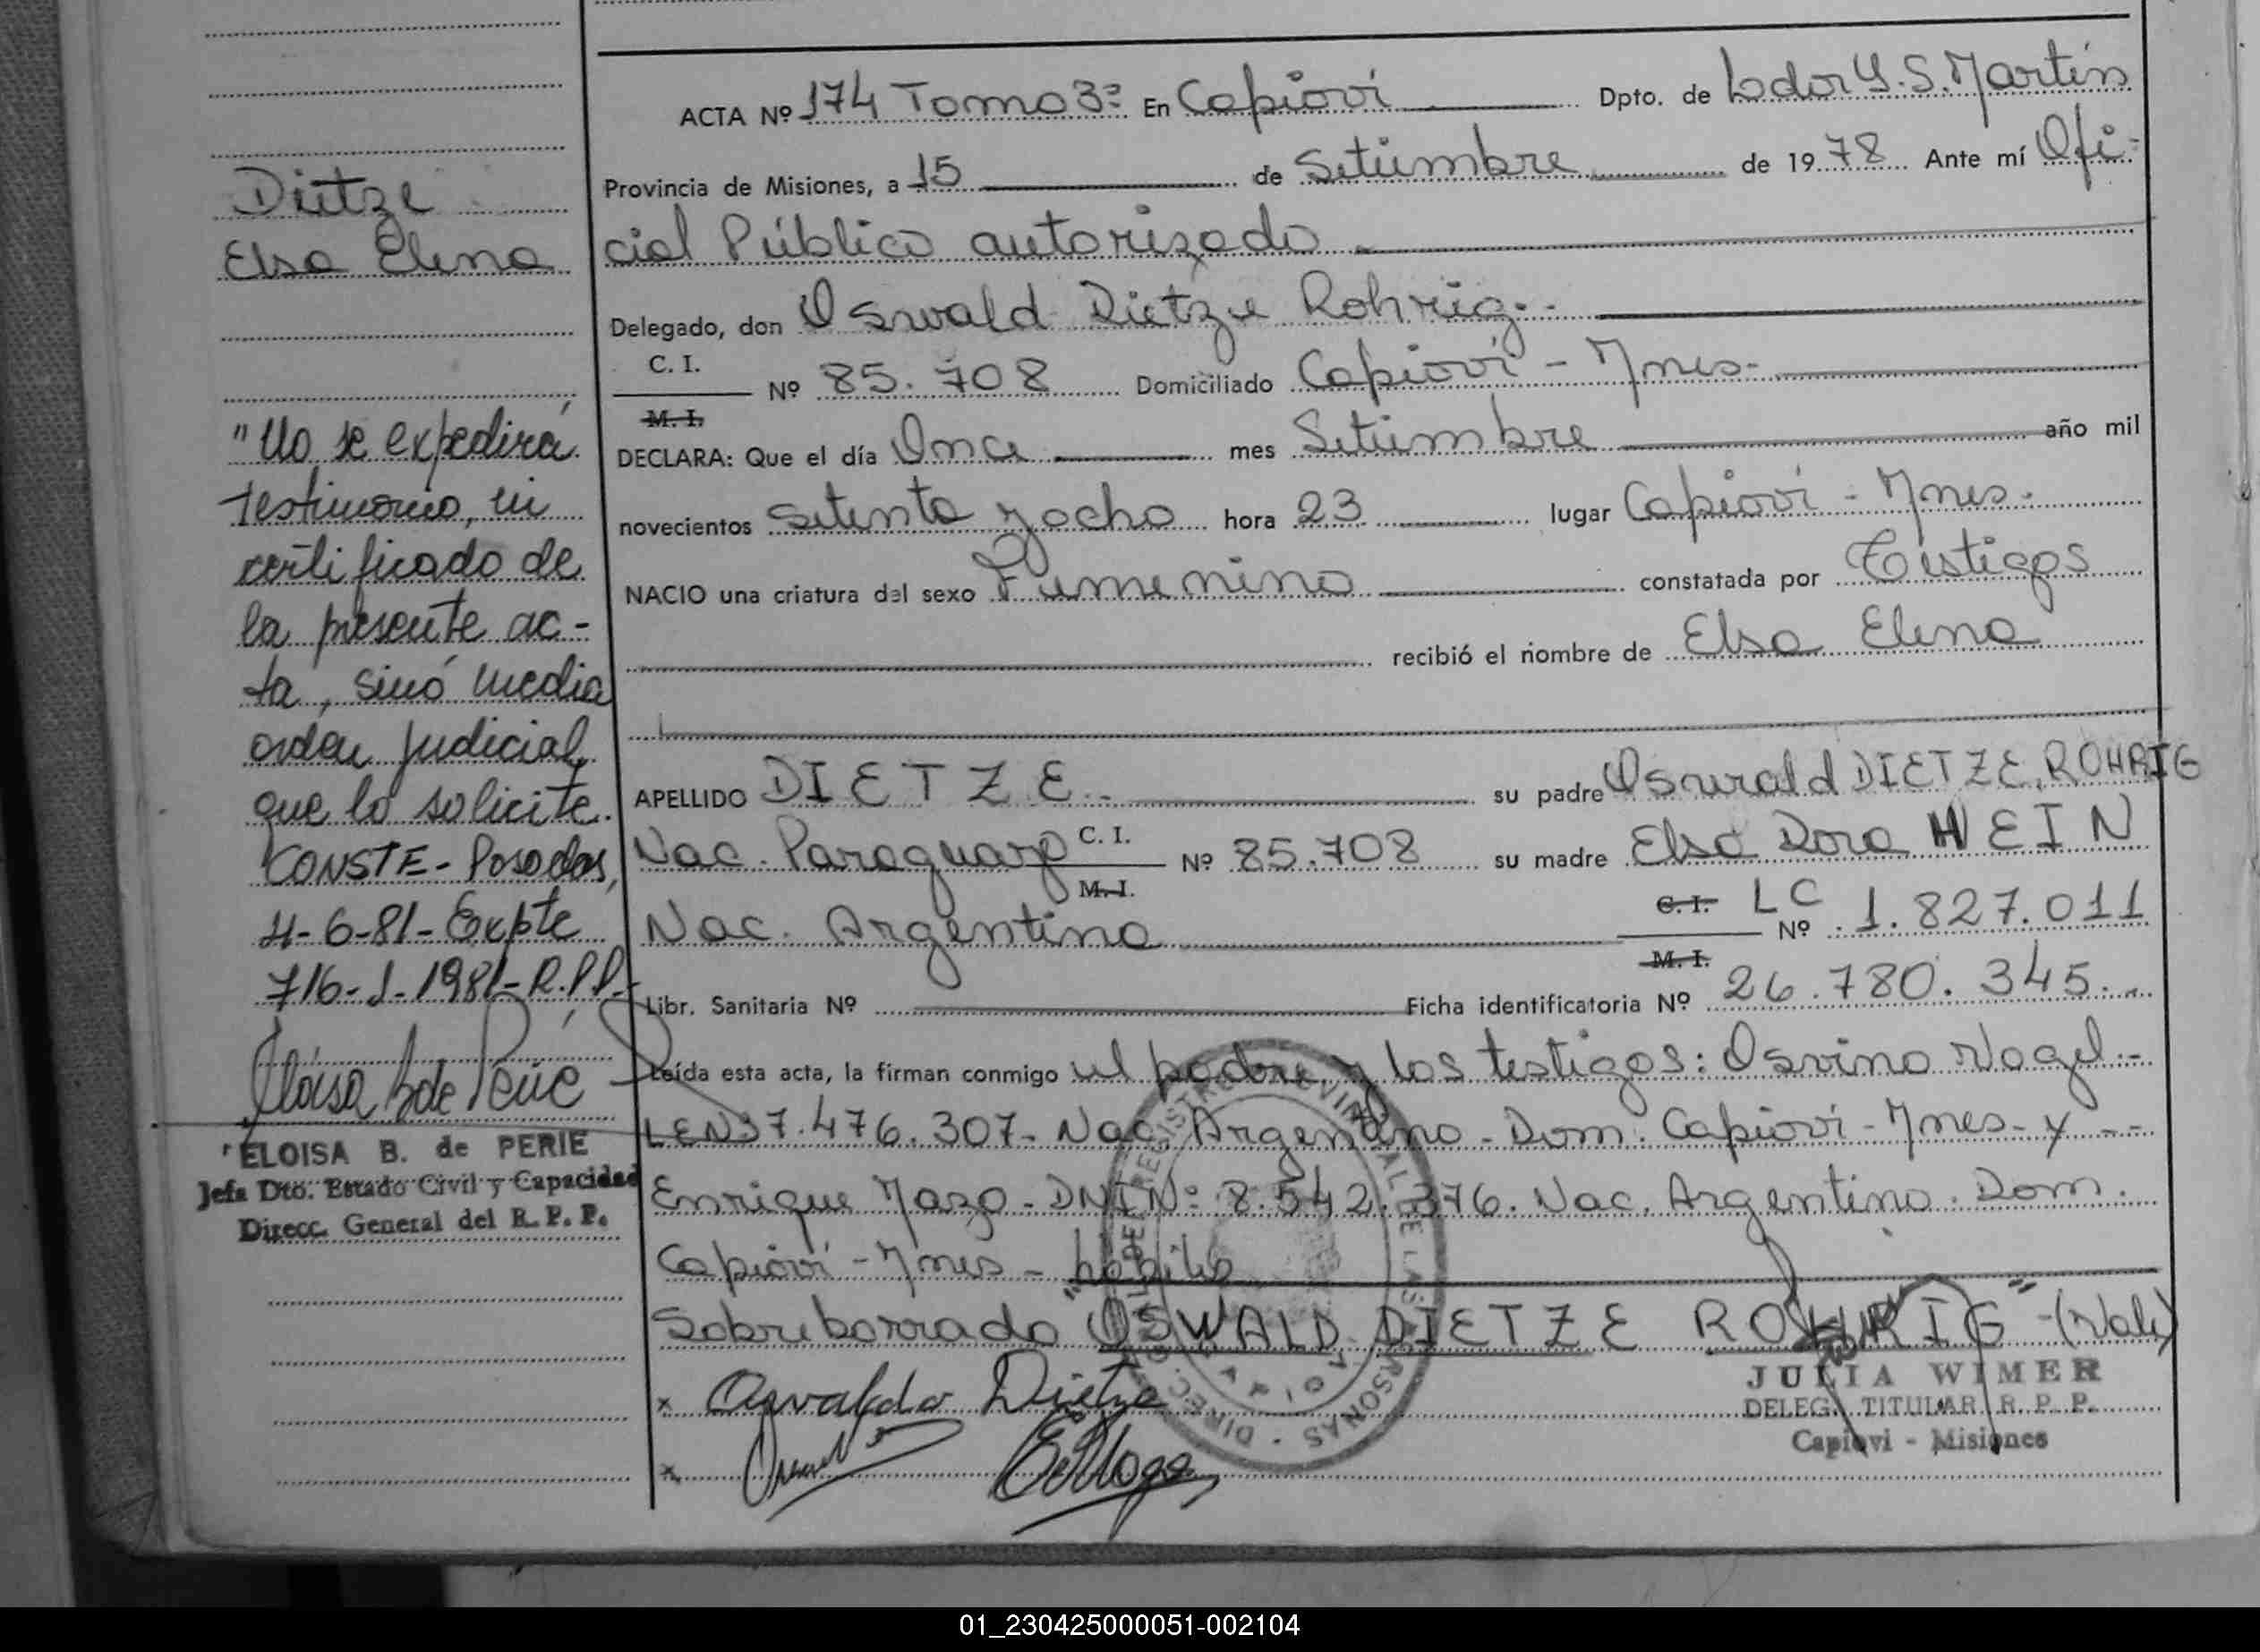 ACTA Nº 174 Tomo 3º En Capioví Dpto. de Ldor G. S. Martín
Provincia de Misiones, a 15 de Setiembre de 1978 Ante mí Ofi-
cial Público autorizado
Delegado, don Oswald Dietze Rohrig.-
C. I.
Nº 85.708 Domiciliado Capioví - Mnes.
M. I.
DECLARA: Que el día Once mes Setiembre año mil
novecientos Setenta y ocho hora 23 lugar Capioví - Mnes.
NACIO una criatura del sexo Femenino constatada por Testigos
recibió el nombre de Elsa Elena
APELLIDO DIETZE.- su padre Oswald DIETZE, ROHRIG
Nac. Paraguayo C. I. Nº 85.708 su madre Elsa Dora HEIN
M. I.
Nac. Argentina C. I. LC Nº 1.827.011
M. I.
Libr. Sanitaria Nº Ficha identificatoria Nº 26.780.345.-
Leída esta acta, la firman conmigo el padre y los testigos: Osvino Nagel.-
LENº 7.476.307- Nac. Argentino - Dom. Capioví - Mnes- y --
Enrique - DNI Nº 8.542.376. Nac. Argentino. Dom.
Capioví - Mnes -
Sobreborrado "OSWALD DIETZE ROHRIG"-(Vale)
x Osvaldo Dietze
x
JULIA WIMER
DELEG. TITULAR R. P. P.
Capiovi - Misiones
DIREC. GRAL. DEL REGISTRO PROVINCIAL DE LAS PERSONAS
Dietze
Elsa Elena
"No se expedirá
testimonio, ni
certificado de
la presente ac-
ta, sinó media
orden judicial,
que lo solicite.
CONSTE- Posadas,
4-6-81- Expte
716-J-1981-R.P.P.-
Eloisa B de Perie
ELOISA B. de PERIE
Jefa Dto. Estado Civil y Capacidad
Direcc. General del R. P. P.
01_230425000051-002104